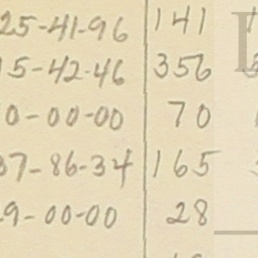 25-41-96 141
15-42-46 356
0-00-00 70
37-86-34 165
9-00-00 28